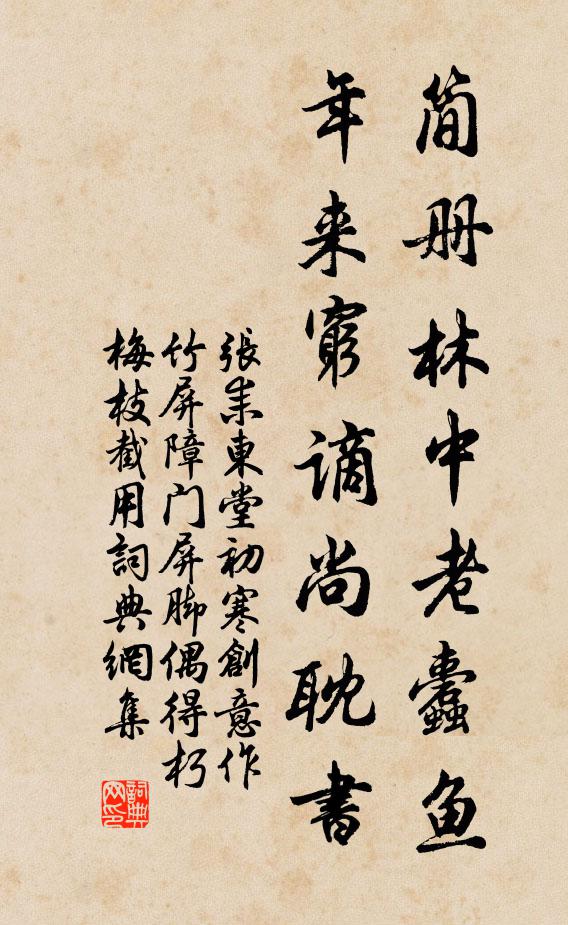 简册林中老蠹鱼
年来穷谪尚耽書
張耒東堂初寒創意作
竹屏障门屏脚偶得朽
梅枝截用詞典網集
詞典网印